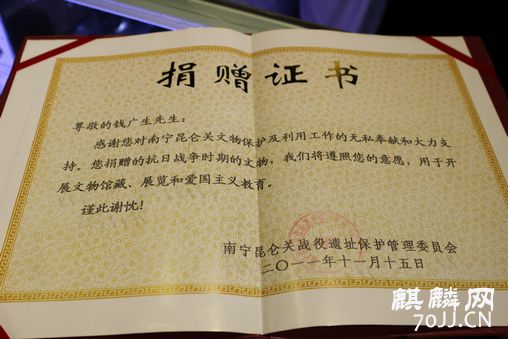 捐赠证书
尊敬的钱广生先生：
感谢您对南宁昆仑关文物保护及利用工作的无私奉献和大力支
持。您捐赠的抗日战争时期的文物，我们将遵照您的意愿，用于开
展文物馆藏、展览和爱国主义教育。
谨此谢忱！
南宁昆仑关战役遗址保护管理委员会
二〇一一年十一月十五日
麒麟网
70JJ.CN